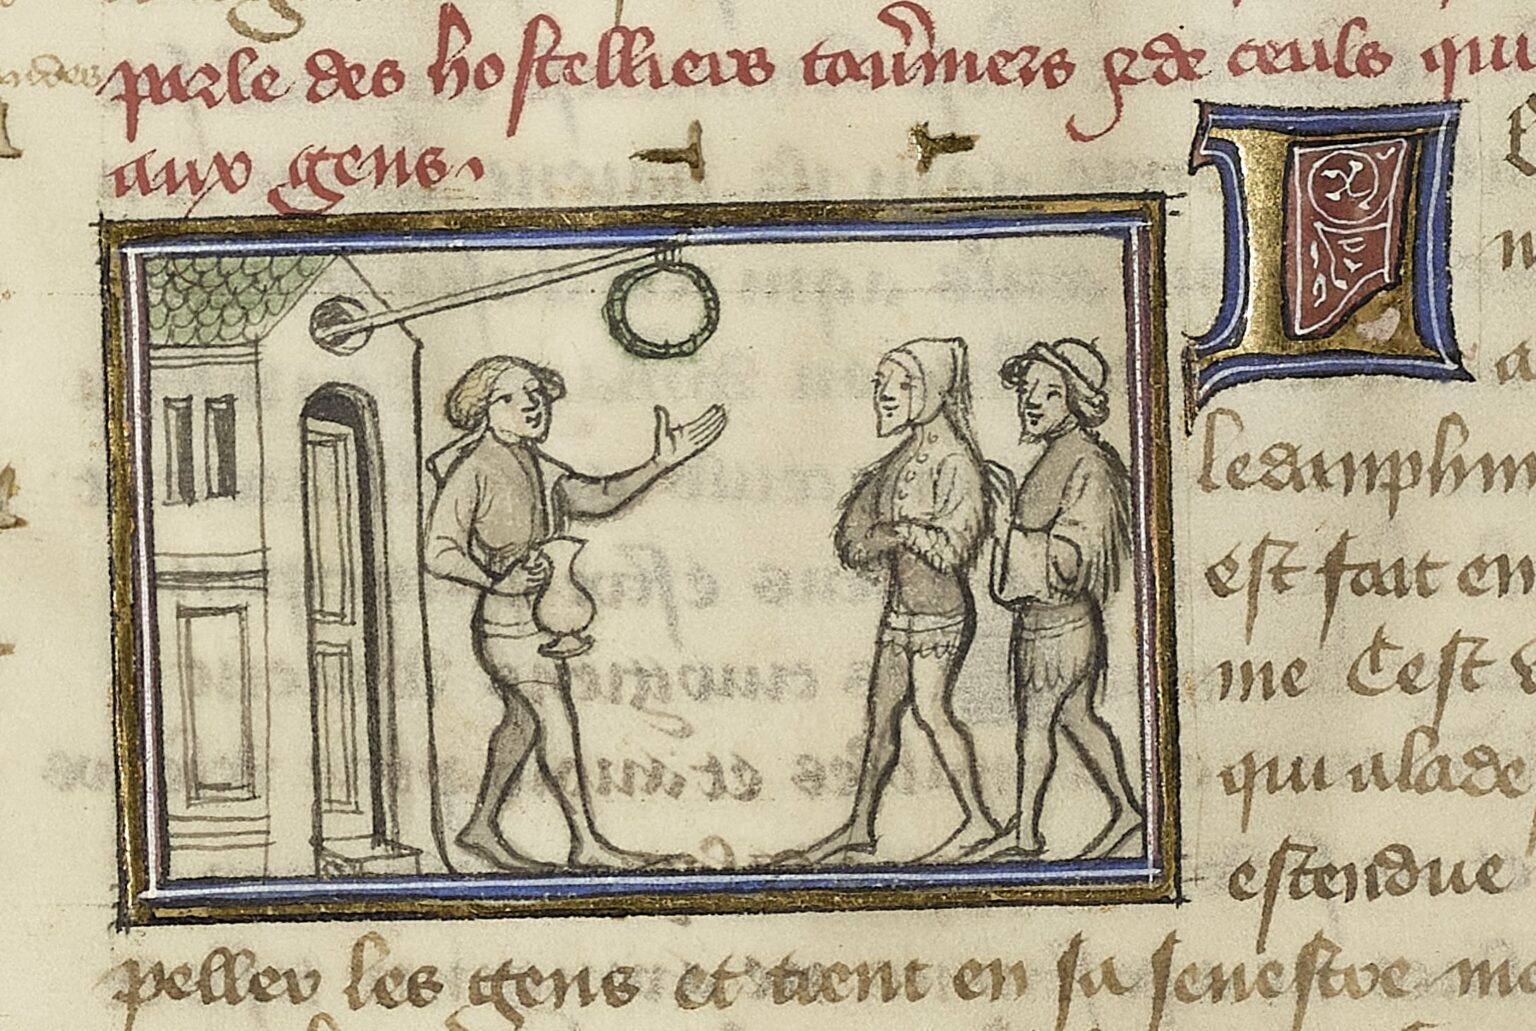 parle des hostelliers tauerniers et de ceuls qui
aux gens.
L
le dauphin
est fait en
me C'est
qui a la de
estendue
peller les gens et tient en sa senestre